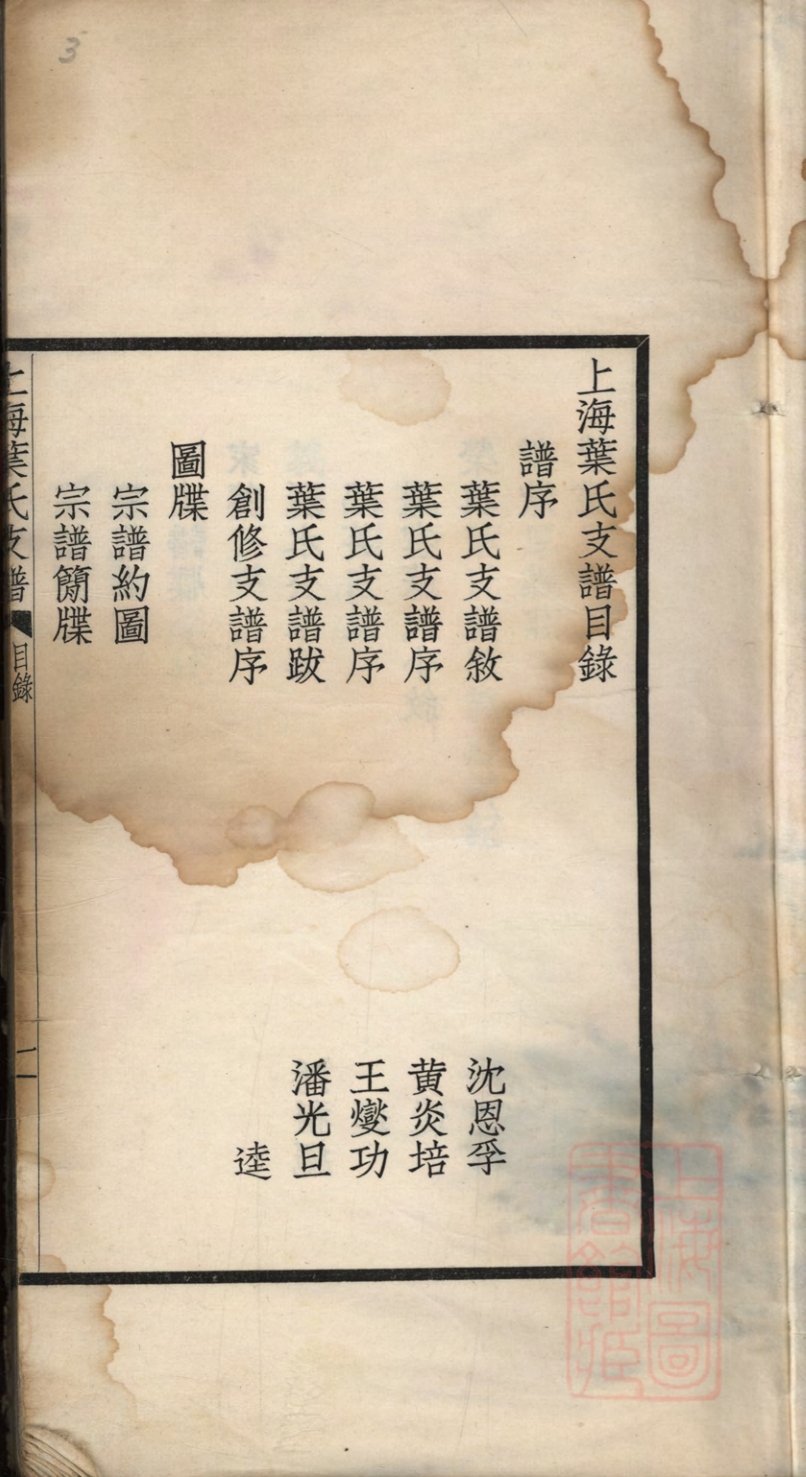 3
上海葉氏支譜目錄
譜序
葉氏支譜敘 沈恩孚
葉氏支譜序 黃炎培
葉氏支譜序 王燮功
葉氏支譜跋 潘光旦
創修支譜序 逵
圖牒
宗譜約圖
宗譜簡牒
上海葉氏支譜 目錄 一
上海圖
書館藏